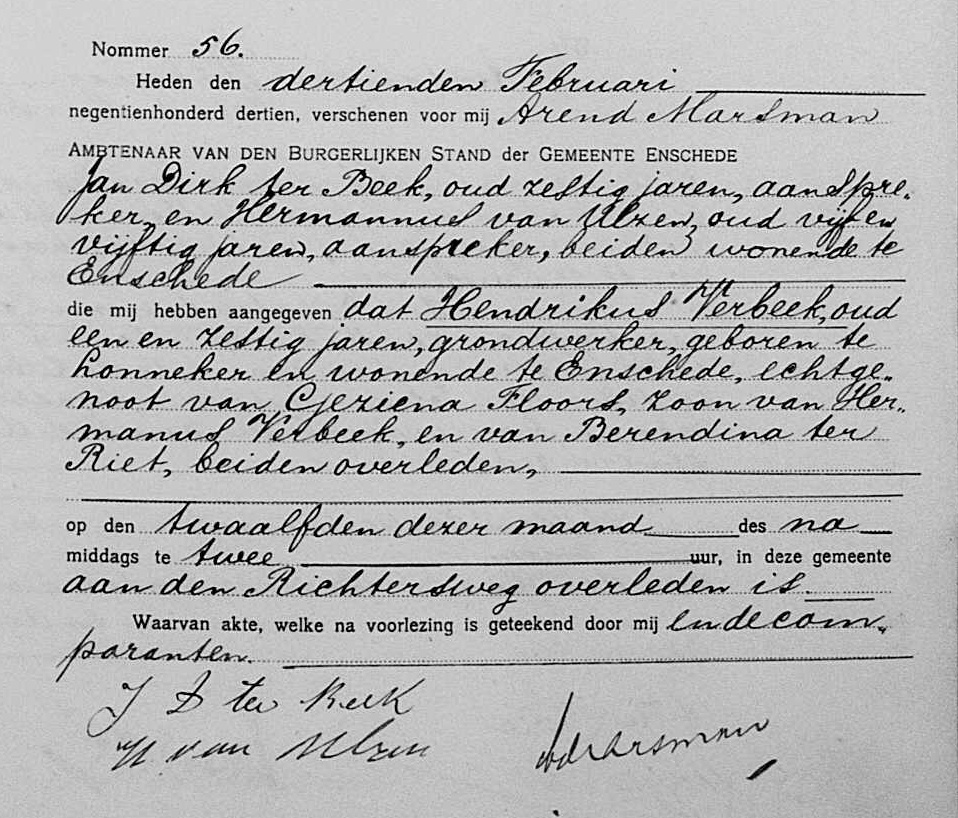 Nommer 56.
Heden den dertienden Februari
negentienhonderd dertien, verschenen voor mij Arend Marsman
AMBTENAAR VAN DEN BURGERLIJKEN STAND der GEMEENTE ENSCHEDE
Jan Dirk ter Beek, oud zestig jaren, aanspre-
ker, en Hermannus van Ulzen, oud vijf en
vijftig jaren, aanspreker, beiden wonende te
Enschede
die mij hebben aangegeven dat Hendrikus Verbeek, oud
een en zestig jaren, grondwerker, geboren te
Lonneker en wonende te Enschede, echtge-
noot van Geziena Floors, zoon van Her-
manus Verbeek, en van Berendina ter
Riet, beiden overleden,
op den twaalfden dezer maand des na
middags te twee uur, in deze gemeente
aan den Richtersweg overleden is.
Waarvan akte, welke na voorlezing is geteekend door mij en de com-
paranten.
J D ter Beek
H van Ulzen
A Marsman